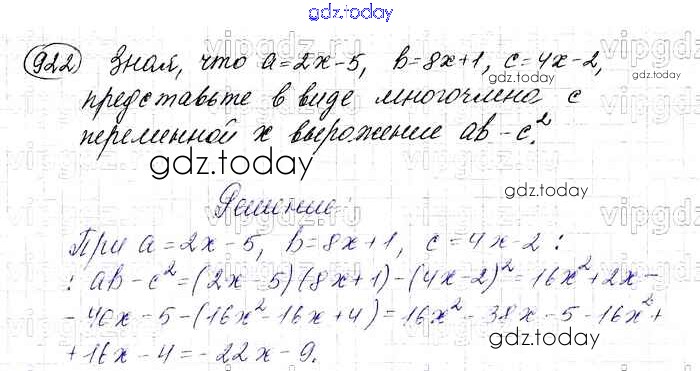 gdz.today
922 Зная, что a=2x-5, b=8x+1, c=4x-2,
gdz.today
представьте в виде многочлена с
переменной x выражение ab-c².
gdz.today
gdz.today
Решение:
При a=2x-5, b=8x+1, c=4x-2:
: ab-c²=(2x-5)(8x+1)-(4x-2)²=16x²+2x-
-40x-5-(16x²-16x+4)=16x²-38x-5-16x²+
+16x-4=-22x-9.
gdz.today